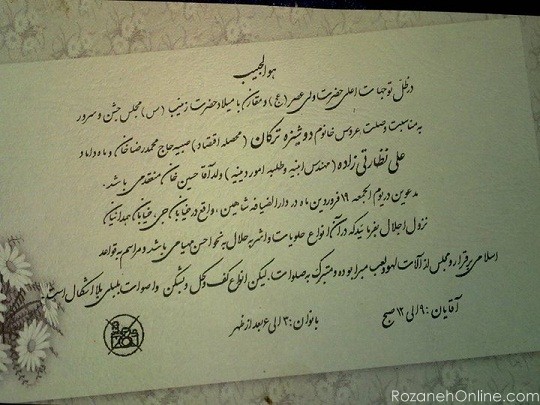 هوالحبیب
در ظلّ توجهات اعلی حضرت ولی عصر (عج) و مقارن با میلاد حضرت زینب (س) مجلس جشن و سرور
به مناسبت وصلت عروس خانوم دوشیزه ترکان (محصله اقتصاد) صبیه حاج محمدرضا خان و ماه داماد
علی نظارتی زاده (مهندس ابنیه و طلبه امور دینیه) ولد آقا حسین خان منعقد می باشد.
مدعوین در یوم الجمعه ۱۹ فروردین ماه در دارالضیافه شاهین، واقع در خیابان جی، خیابان همدانیان
نزول اجلال بفرمایید که در آن انواع حلویات و اشربه حلال به نحو احسن مهیا می باشد و مراسم به قواعد
اسلامی برقرار و مجلس از آلات لهو و لعب مبرا بوده و متبرک به صلوات. لیکن انواع کف و کل و بشکن و اصوات بلبلی بلا اشکال است.
آقایان: ۹ الی ۱۲ صبح
بانوان: ۳ الی ۶ بعد از ظهر
RozanehOnline.com